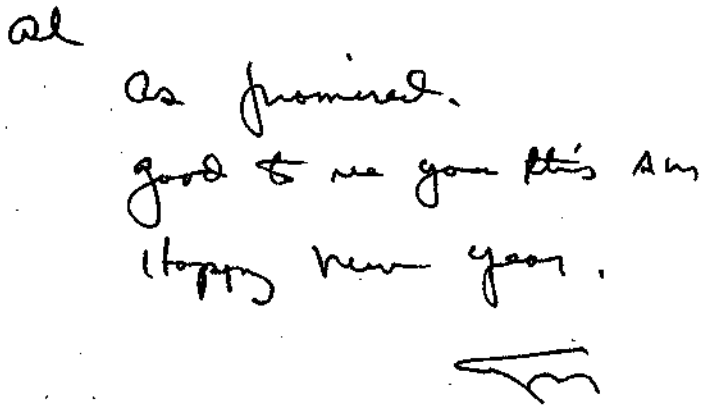 Al
As promised.
good to see you this AM
Happy New Year.